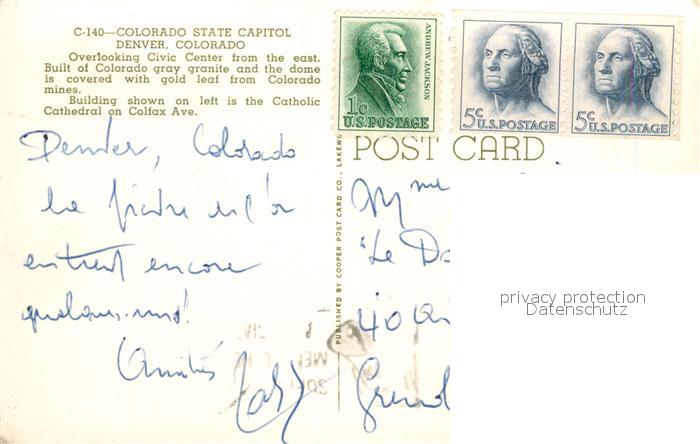 C-140—COLORADO STATE CAPITOL
DENVER, COLORADO
Overlooking Civic Center from the east.
Built of Colorado gray granite and the dome
is covered with gold leaf from Colorado
mines.
Building shown on left is the Catholic
Cathedral on Colfax Ave.
ANDREW JACKSON
1c
U.S. POSTAGE
5c
U.S. POSTAGE
5c
U.S. POSTAGE
POST CARD
PUBLISHED BY COOPER POST CARD CO., LAKEWO
Denver, Colorado
La fièvre de l'or
entrent encore
quelques-uns!
Amitiés
Mme
"Le Do
40
Grenob
privacy protection
Datenschutz